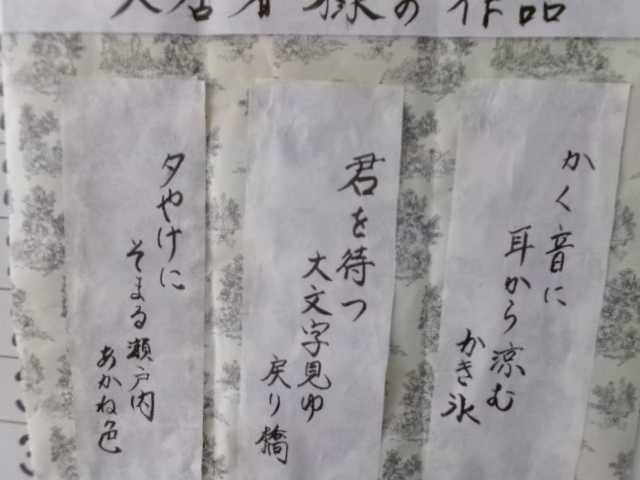 入居者様の作品
かく音に
耳から涼む
かき氷
君を待つ
大文字見ゆ
戻り橋
夕やけに
そまる瀬戸内
あかね色